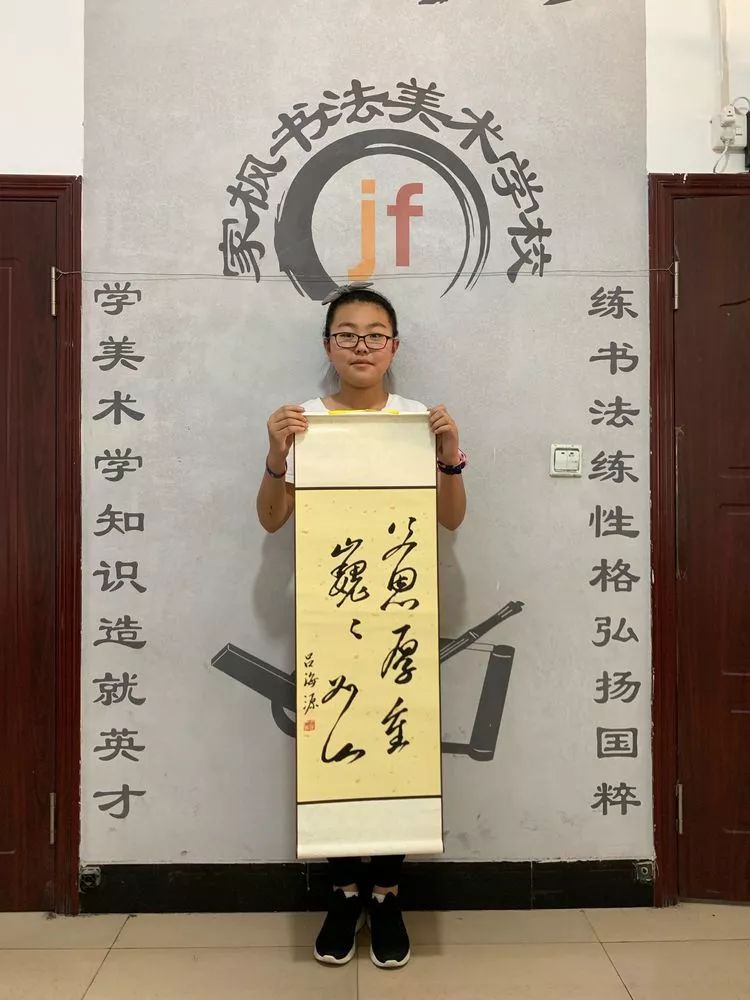 家枫书法美术学校
jf
练书法练性格弘扬国粹
学美术学知识造就英才
父恩厚重
巍〻如山
吕海源